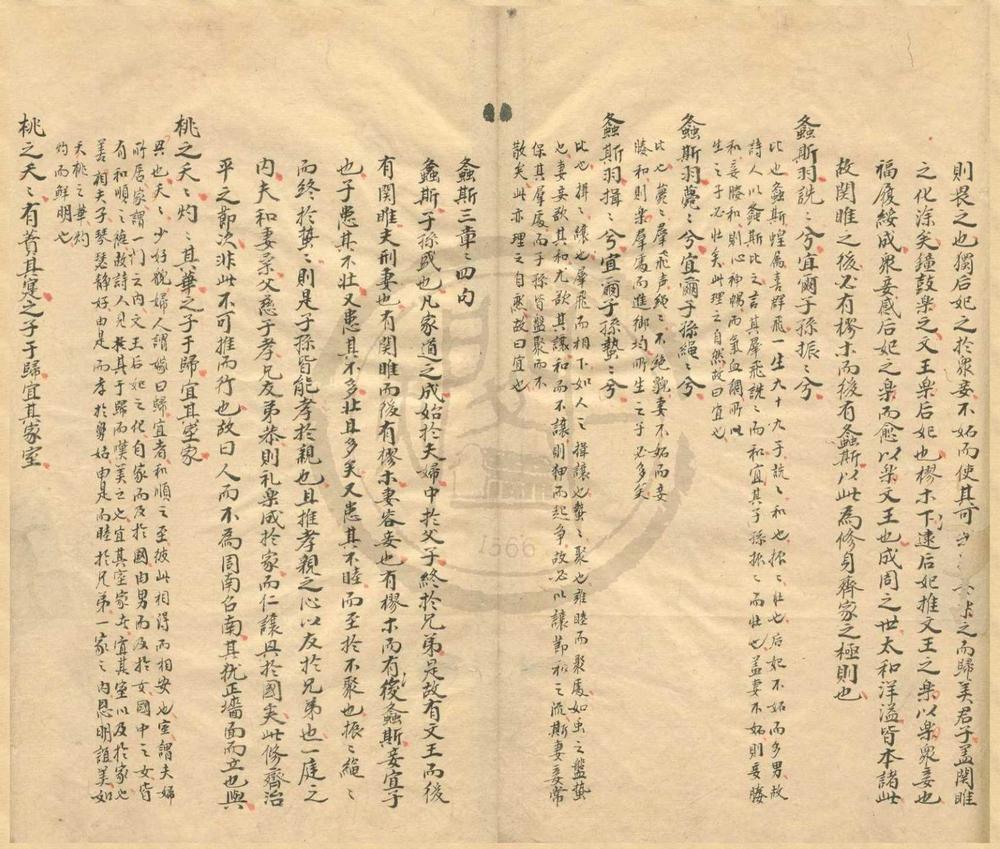 則畏之也獨后妃之於衆妾不妬而使其可之而歸美君子盖関雎
之化深矣鐘鼓楽之文王楽后妃也樛木下逮后妃推文王之楽以楽衆妾也
福履綏成衆妾感后妃之楽而愈以楽文王也成周之世太和洋溢皆本諸此
故関雎之後必有樛木而後有螽斯以此為修身齊家之極則也
螽斯羽詵〻兮宜爾子孫振〻兮
比也螽斯蝗属喜群飛一生九十九子詵〻和也振〻壮也后妃不妬而多男故
詩人以螽斯比之言其羣飛詵〻而和宜其子孫振〻而壮也盖妻不妬則妾媵
和妾媵和則心神暢而氣血調所以
生之子必壮矣此理之自然故曰宜也
螽斯羽薨〻兮宜爾子孫繩〻兮
比也薨〻羣飛声繩〻不絶貌妻不妬而妾
媵和則楽羣處而進御均所生之子必多矣
螽斯羽揖〻兮宜爾子孫蟄〻兮
比也揖〻讓也羣飛而相下如人之揖讓也蟄〻聚也雍睦而聚處如虫之盤蟄
也妻妾歌其和尤歌其讓和而不讓則狎而起争故必以讓節和之流斯妻妾常
保其羣處而子孫皆盤聚而不
散矣此亦理之自然故曰宜也
螽斯三章〻四句
螽斯子孫盛也凡家道之成始於夫婦中於父子終於兄弟是故有文王而後
有関雎夫刑妻也有関雎而後有樛木妻容妾也有樛木而有後螽斯妾宜子
也子患其不壮又患其不多壮且多矣又患其不睦而至於不聚也振〻繩〻
而終於蟄〻則是子孫皆能孝於親也且推孝親之心以友於兄弟也一庭之
内夫和妻柔父慈子孝兄友弟恭則礼楽成於家而仁讓興於國矣此修齊治
平之節次非此不可推而行也故曰人而不為周南召南其犹正墻面而立也與
桃之夭〻灼〻其華之子于歸宜其室家
興也夭〻少好貌婦人謂嫁曰歸宜者和順之至彼此相得而相安也室謂夫婦
所居家謂一門之内文王后妃之化自家而及於國由男而及於女國中之女皆
有和順之徳故詩人見其于歸而嘆美之也宜其室家者宜其室以及於家也
善相夫子琴瑟静好由是而孝於舅姑由是而睦於兄弟一家之内恩明誼美如
夭桃之華灼
灼而鮮明也
桃之夭〻有蕡其実之子于歸宜其家室